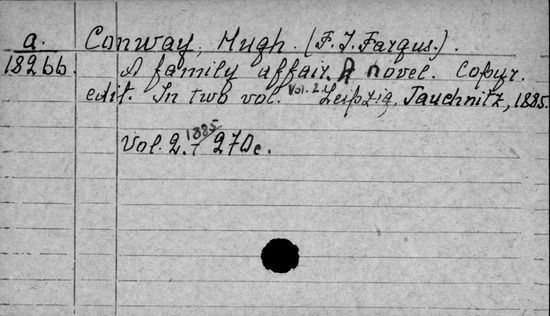 a. Conway, Hugh. (F. J. Fargus.).
1826b. A family affair. A novel. Copyr.
edit. In two vol. Vol. 2. Leipzig, Tauchnitz, 1885.
Vol. 2. 1885 270c.